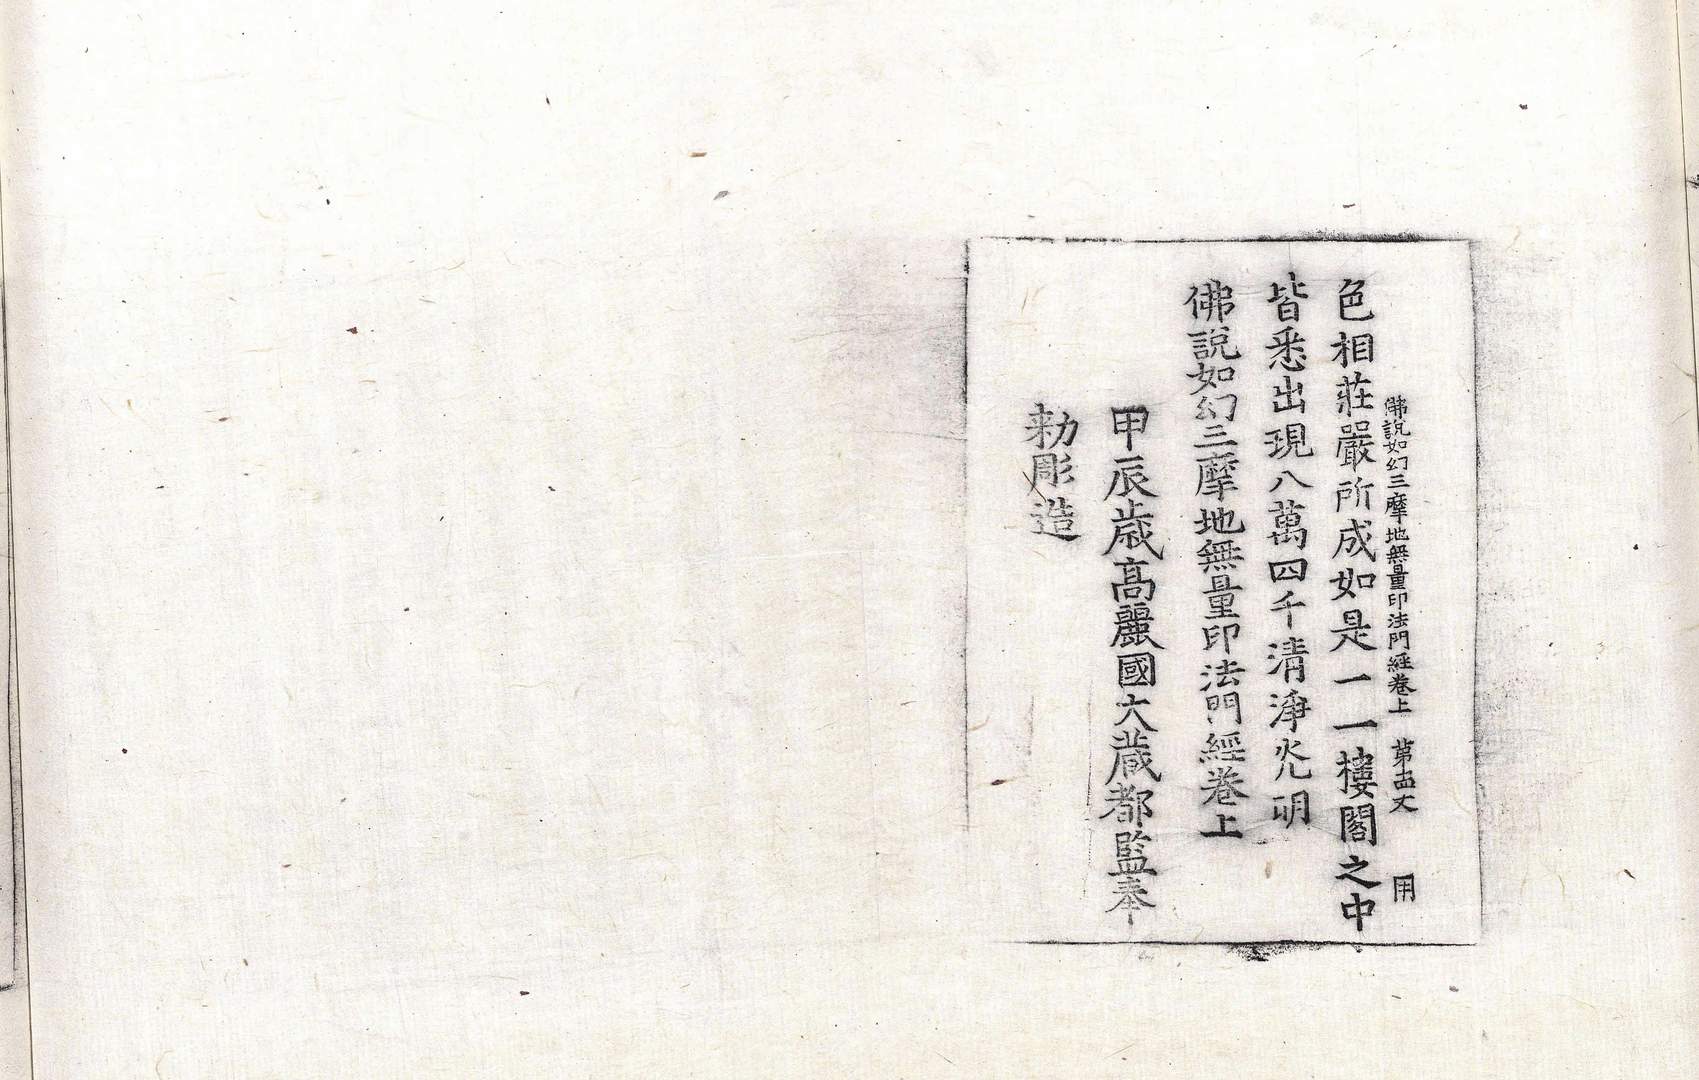 佛說如幻三摩地無量印法門經卷上 第十五丈 用
色相莊嚴所成如是一一樓閣之中
皆悉出現八萬四千清淨光明
佛說如幻三摩地無量印法門經卷上
甲辰歲高麗國大藏都監奉
勅彫造